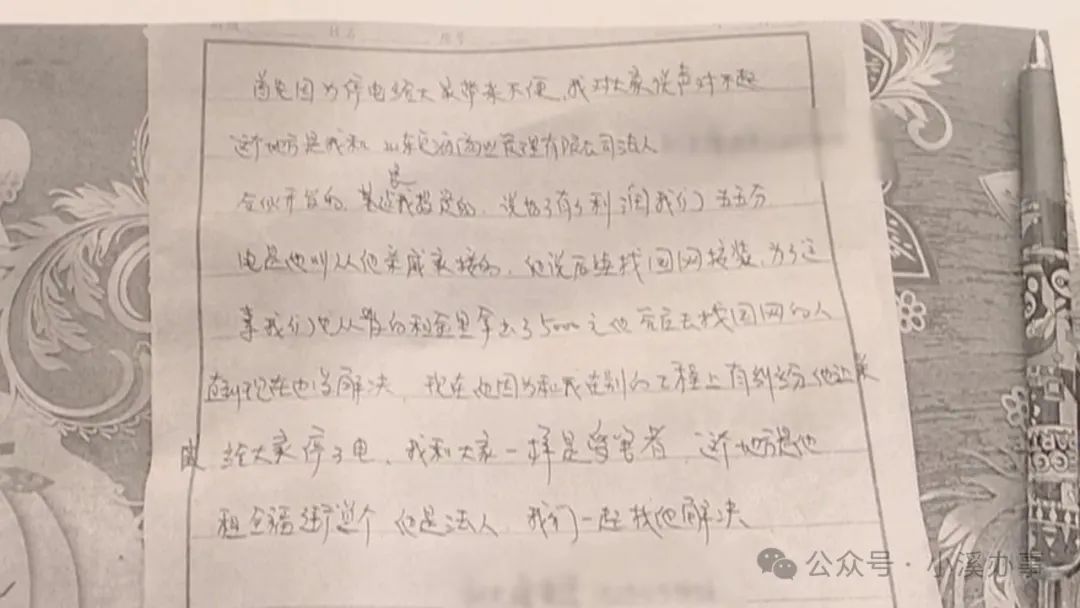 首先因为停电给大家带来不便,我对大家说声对不起
这个地方是我和山东 商业管理有限公司法人
合伙开的、 是我投资的,说好了有了利润我们五五分
电是他叫从他亲戚家接的,他说后续找国网接装,为了这
事我们也从 的租金里拿出了5000元他答应去找国网的人
直到现在也没解决,现在他因为和我在别的工程上有纠纷他让来
给大家停了电,我和大家一样是受害者,这个地方是他
租 福街道个 他是法人,我们一起找他解决
公众号·小溪办事